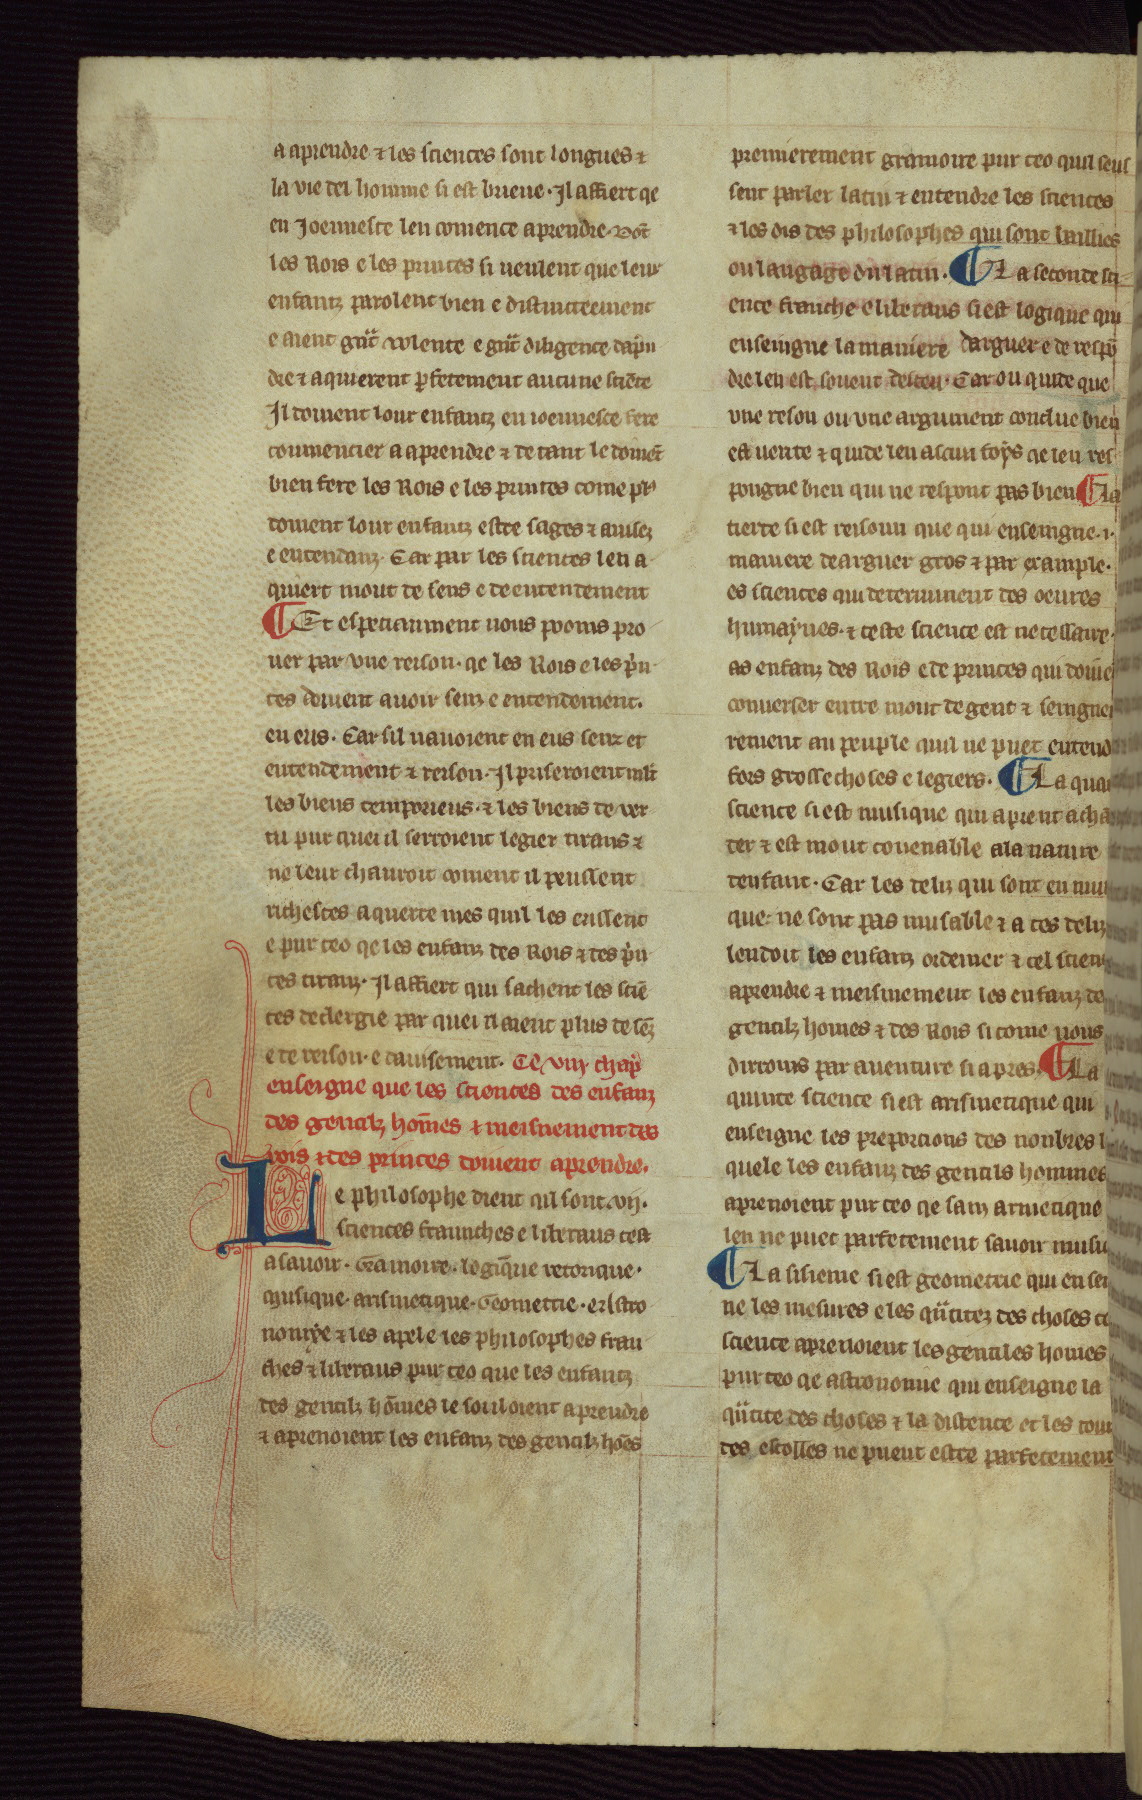 a aprendre ⁊ les sciences sont longues ⁊
la vie del homme si est brieue· Il affiert qe
en Joenneste len comence aprendre·
les Rois e les princes si ueulent que leur
enfantz parolent bien e distincteement
e aient gnt̄ volente e gnt̄ diligence dap̄n
dre ⁊ aquierent p̄fetement aucune sciēce
Il doiuent lour enfantz en ioennesce fere
commencier a aprendre ⁊ de tant le doiuēt
bien fere les Rois e les princes come pl᷒
doiuent lour enfantz estre sages ⁊ auisez
e entendanz· Car par les sciences len a
quiert mout de sens e de entendement
¶ Et especiaument nous poons pro
uer par vne reison· qe les Rois e les p̄n
ces doiuent auoir senz e entendement·
en eus· Car sil nauoient en eus senz et
entendement ⁊ reison· Il priseroient mlt̄
les biens temporieus· ⁊ les biens de ver
tu pur quei il serroient legier tirans ⁊
ne leur chauroit coment il peussent
richesces aquerre mes quil les eussent
e pur ceo qe les enfanz des Rois ⁊ des p̄n
ces tiranz· Il affiert qui sachent les sciē
ces de clergie par quei il aient plus de sēz
e de reison· e dauisement· Ce viij chap̄
enseigne que les sciences des enfanz
des gentilz hom̄es ⁊ meisnement des
rois ⁊ des princes doiuent aprendre·
Le philosophe dient qil sont vij·
sciences fraunches e liberaus cest
a sauoir· Gramoire· logiq̄ue retorique·
Musique· arismetique· Geometrie· e Astro
nomye ⁊ les apele les philosophes fran
ches ⁊ liberaus pur ceo que les enfantz
des gentilz hōmes le souloient aprendre
⁊ aprenoient les enfanz des gentilz hoēs
premierement gramoire pur ceo quil seus
sent parler latin ⁊ entendre les sciences
⁊ les dis des philosophes qui sont baillies
ou langage du latin· ¶ La seconde sci
ence franche e liberaus si est logique qui
enseingne la maniere darguer e de respō
dre len est souent deceu· Car ou quide que
vne reson ou vne argument conclue bien
est uerite ⁊ quide len ascun foys qe len res
pongne bien qui ne respont pas bien ¶ La
tierce si est reisoun que qui enseingne·i·
maniere de arguer gros ⁊ par example·
es sciences qui determinent des oeures
humaynes· ⁊ ceste science est necessaire·
as enfanz des Rois e de princes qui doiue
conuerser entre mout de gent ⁊ seingneu
rement au peuple quil ne puet entend
fors grosse choses e legiers· ¶ La quar
science si est musique qui aprent a chā
ter ⁊ est mout couenable a la nature
denfant· Car les deliz qui sont en mu
que· ne sont pas nuisable ⁊ a ces deliz
lendoit les enfanz ordeiner ⁊ cel scien
aprendre ⁊ meismement les enfanz de
gentilz homes ⁊ des Rois si come nous
dirrons par auenture si apres· ¶ La
quinte science si est arismetique qui
enseigne les preporcions des nonbres l
quele les enfanz des gentils hommes
aprenoient pur ceo qe sanz armetique
len ne puet parfetement sauoir musi
¶ La sisieme si est geometrie qui ensei
ne les mesures e les qūtitez des choses ce
science aprenoient les gentiles homes
pur ceo qe astronomie qui enseigne la
qūtite des choses ⁊ la distence et les cour
des estoilles ne puent estre parfetement